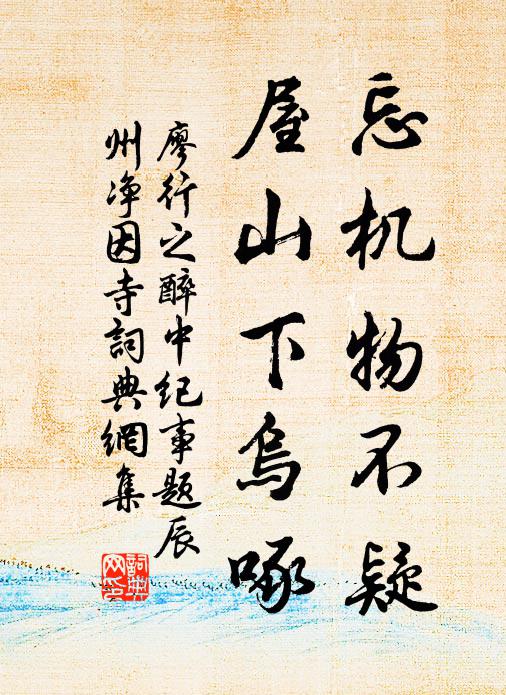 忘机物不疑
屋山下乌啄
廖行之醉中纪事题辰
州净因寺詞典網集